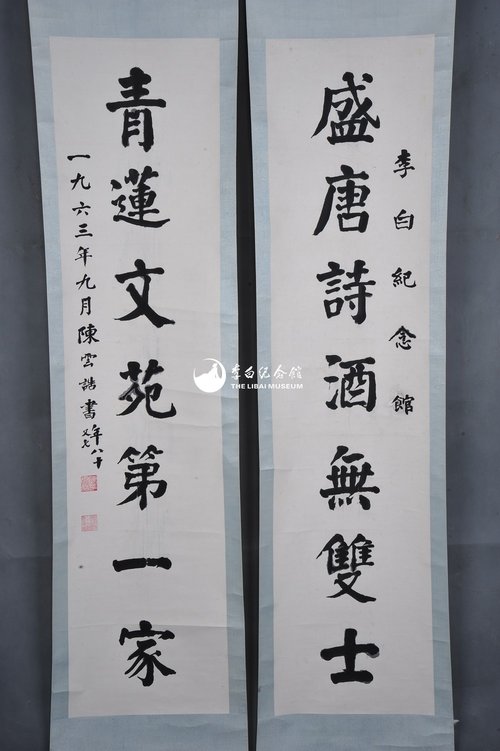 李白紀念館
盛唐詩酒無雙士
青蓮文苑第一家
一九六三年九月陳雲誥書年八十又七
李白纪念館
THE LIBAI MUSEUM